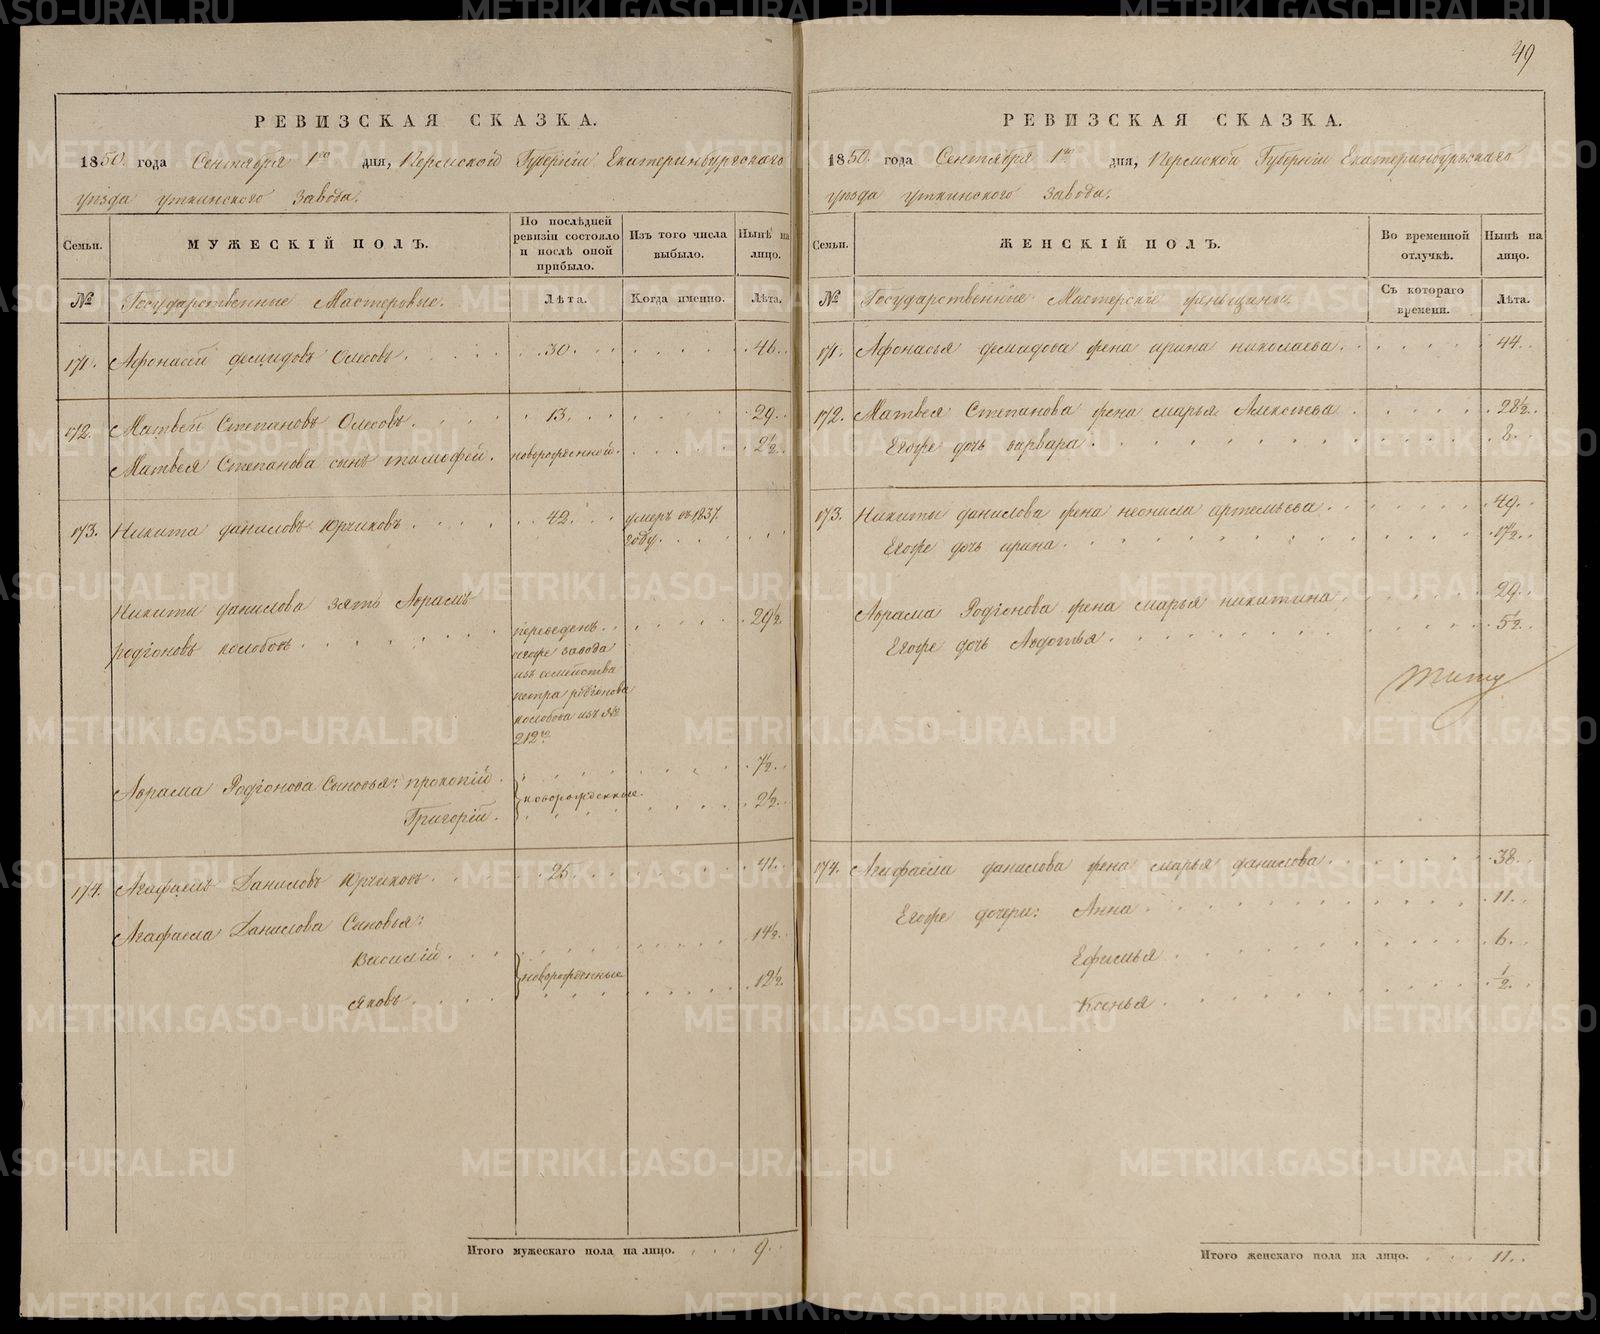 49
РЕВИЗСКАЯ СКАЗКА.
1850. года Сентября 1го дня, Пермской Губернiи Екатеринбургскаго
уѣзда уткинского Завода.
Семьи.
МУЖЕСКIЙ ПОЛЪ.
По послѣдней ревизiи состояло и послѣ оной прибыло.
Изъ того числа выбыло.
Нынѣ на лицо.
№
Государственные Мастеровые.
Лѣта.
Когда именно.
Лѣта.
171. Афонасiй демидовъ 30. 46.
172. Матвѣй Степановъ 13. 29.
Матвея Степанова сынъ тимофей. новорожденной. 2½.
173. Никита даниловъ Юрчиковъ 42. умеръ въ 1837.
году.
Никиты данилова зять Аврамъ
родiоновъ колобовъ 29½.
переведенъ
тогоже завода
изъ семейства
петра родiонова
колобова изъ №
212го
Аврама Родiонова Сыновья: прокопiй 7½.
Григорiй. новорожденные. 2½.
174. Агафонъ Даниловъ Юрчиковъ 25. 41.
Данилова Сыновья:
Василiй 14½.
новорожденные
яковъ 12½.
Итого мужескаго пола на лицо. 9.
РЕВИЗСКАЯ СКАЗКА.
1850. года Сентября 1го дня, Пермской Губернiи Екатеринбургскаго
уѣзда уткинского Завода.
Семьи.
ЖЕНСКIЙ ПОЛЪ.
Во временной отлучкѣ.
Нынѣ на лицо.
№
Государственные Мастерскiе женьщины.
Съ котораго времени.
Лѣта.
171. Афонасья демидова жена ирина николаева 44.
172. Матвея Степанова жена марья Алексеева 28½.
Егоже дочь варвара 8.
173. Никиты данилова жена неонила артемьева 49.
Егоже дочь ирина 17½.
Аврама Родiонова жена марья никитина 29.
Егоже дочь Авдотья 5½.
174. данилова жена марья данилова 38.
Егоже дочери: Анна 11.
Ефимья 6.
Ксенья ½.
Итого женскаго пола на лицо. 11.
METRIKI.GASO-URAL.RU